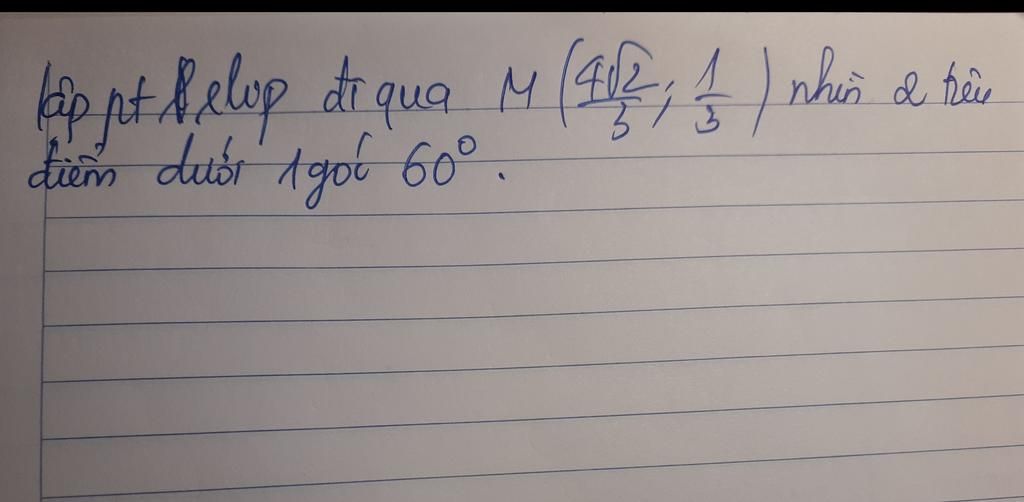 lập pt elip đi qua M (4√2/3; 1/3) nhìn 2 tiêu
điểm dưới 1 góc 60°.